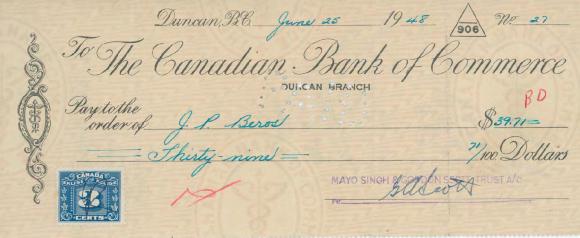 Duncan, B.C. June 25 1948 906 No. 27
To The Canadian Bank of Commerce
DUNCAN BRANCH
BD
Pay to the
order of J. P. Beros $39.71
Thirty-nine 71/100 Dollars
MAYO SINGH & GORDON SCOTT TRUST A/C
CANADA
3
CENTS